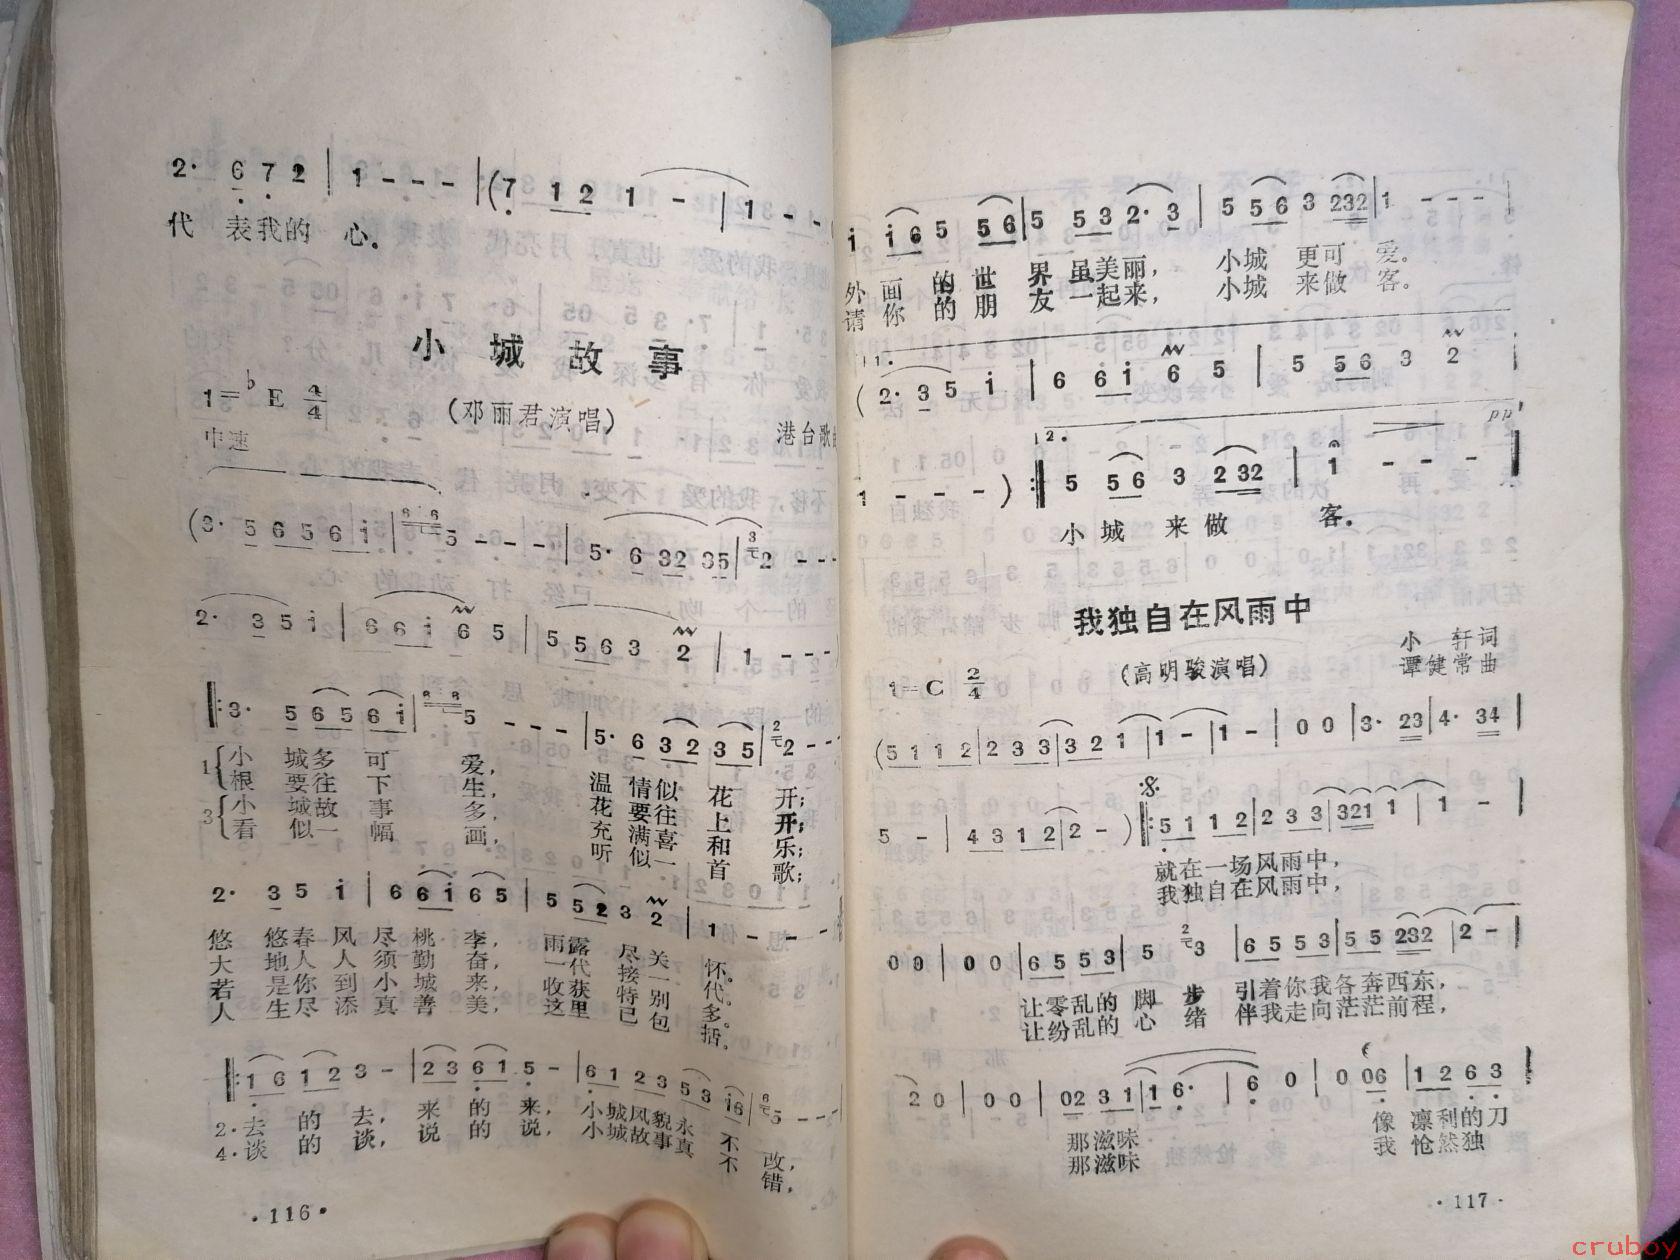 2· 6 7 2 | 1 - - - | (7 1 2 1 - | 1 - -
代 表我的 心。
小城故事
1=♭E 4/4
(邓丽君演唱)
中速
港台歌
(3· 5 6 5 6 i | 5 - - - | 5· 6 32 35 | 2 - - -
2· 3 5 i | 6 6 i 6 5 | 5 5 6 3 2 | 1 - - -
3· 5 6 5 6 i | 5 - - - | 5· 6 3 2 3 5 | 2 - -
1{小 城多 可 爱, 温 情似 花 开;
根 要往 下 生, 花 要往 上 开;
3{小 城故 事 多, 充 满喜 和 乐;
看 似一 幅 画, 听 似一 首 歌;
2· 3 5 i | 6 6 i 6 5 | 5 5 2 3 2 | 1 - - -
悠 悠春 风 尽 桃 李, 雨露 尽 关 怀。
大 地人 人 须 勤 奋, 一代 接 一 代。
若 是你 到 小 城 来, 收获 特 别 多。
人 生尽 添 真 善 美, 这里 已 包 括。
1 6 1 2 3 - | 2 3 6 1 5 - | 6 1 2 3 5 3 i6 | 5 - -
2·去 的 去, 来 的 来, 小城风貌永 不 改,
4·谈 的 谈, 说 的 说, 小城故事真 不 错,
·116·
i i 6 5 5 6 | 5 5 3 2· 3 | 5 5 6 3 232 | 1 - - - |
外 面 的 世 界 虽美丽, 小城 更可 爱。
请 你 的 朋 友 一起来, 小城 来做 客。
1.
(2· 3 5 i | 6 6 i 6 5 | 5 5 6 3 2 |
2. pp
1 - - - ) :‖ 5 5 6 3 2 32 | 1 - - - ‖
小 城 来 做 客。
我独自在风雨中
小 轩词
(高明骏演唱)
谭健常曲
1=C 2/4
(5 1 1 2 | 2 3 3 | 3 2 1 | 1 - | 1 - | 0 0 | 3· 23 | 4· 34 |
5 - | 4 3 1 2 | 2 - ) ‖: 5 1 1 2 | 2 3 3 | 321 1 | 1 - |
就在一场风雨中,
我独自在风雨中,
0 0 | 0 0 | 6 5 5 3 | 5 3 | 6 5 5 3 | 5 5 232 | 2 - |
让零乱的 脚 步 引着你我各奔西东,
让纷乱的 心 绪 伴我走向茫茫前程,
2 0 | 0 0 | 02 3 1 | 1 6· | 6 0 | 0 06 | 1 2 6 3
那滋味 像 凛利的刀
那滋味 我 怆然独
·117·
cruboy